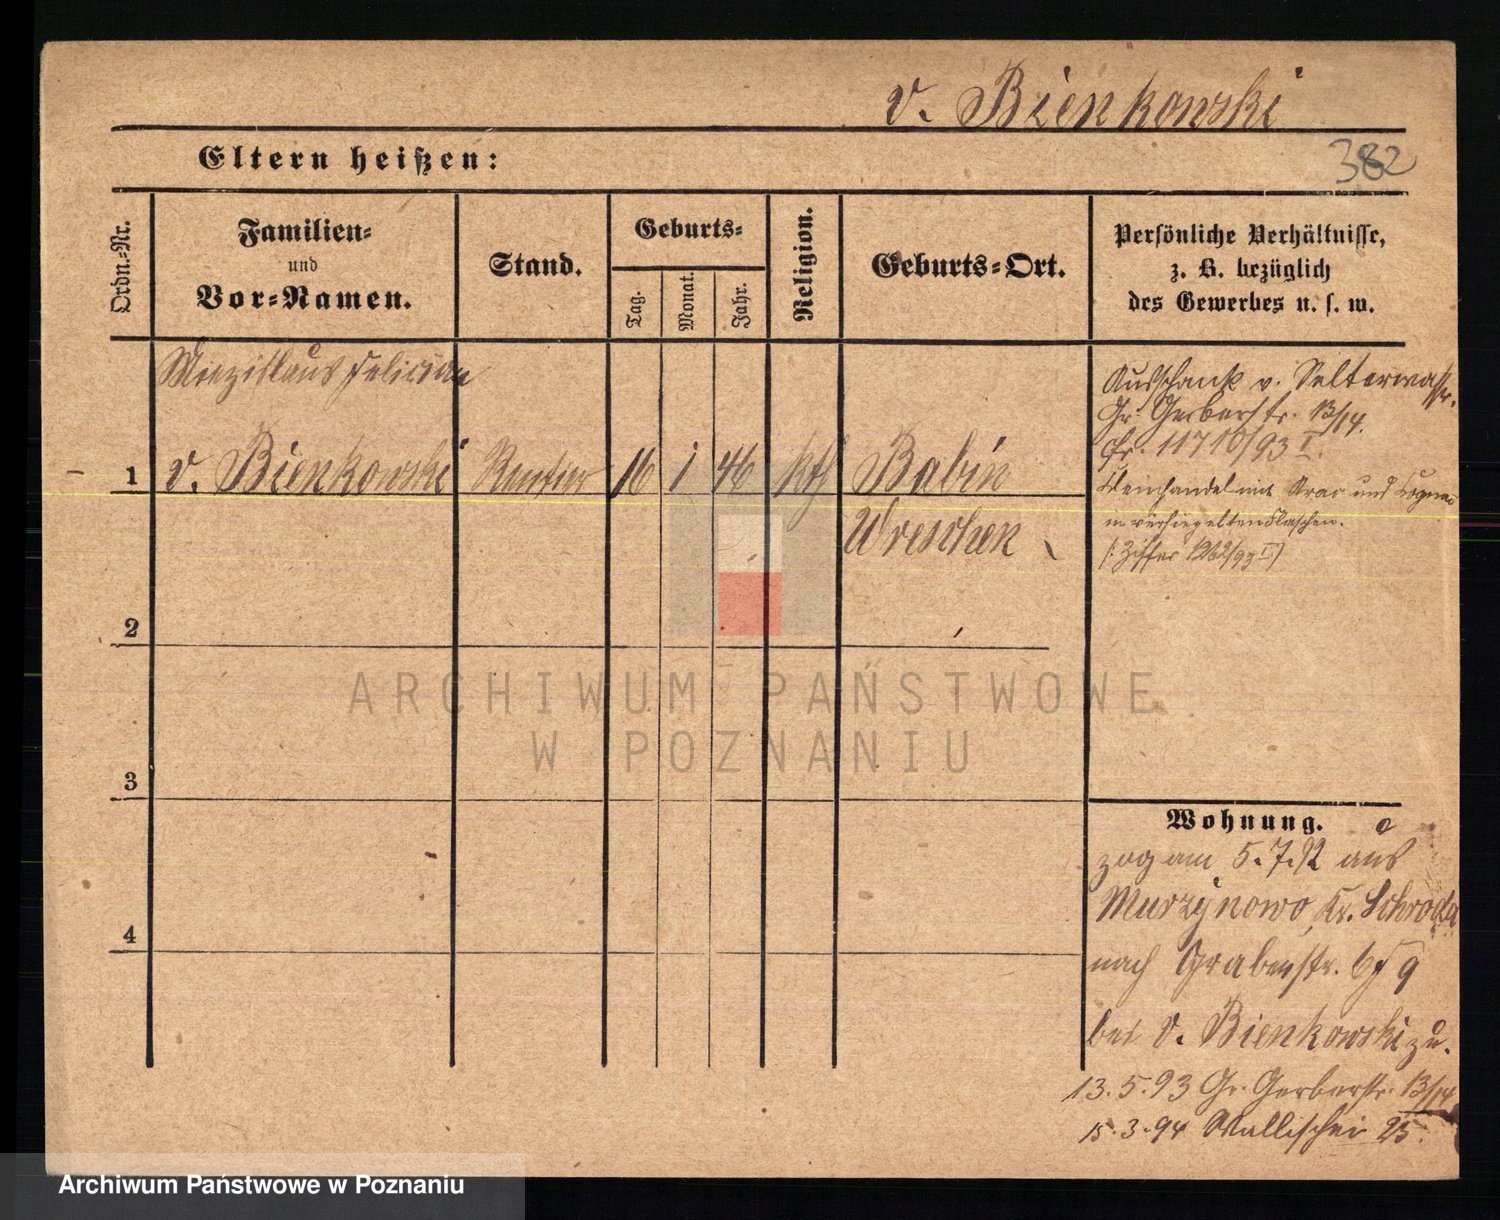 v. Bienkowski
Eltern heißen:
382
Ordn.-Nr.
Familien-
und
Vor-Namen.
Stand.
Geburts-
Tag.
Monat.
Jahr.
Religion.
Geburts-Ort.
Persönliche Verhältnisse,
z. B. bezüglich
des Gewerbes u. s. w.
Miezislaus Felician
1 v. Bienkowski Rentier 16 1 46 kth Babin
Wreschen
Ausschank v. Selterwasser.
Gr. Gerberstr. 13/14.
fr. 11710/93 I.
Weinhandel mit Arac und Cognac
in versiegelten Flaschen.
(: Ziffer 1262/93 I)
2
3
4
ARCHIWUM PAŃSTWOWE
W POZNANIU
Wohnung.
zog am 5.7.92 aus
Murzynowo, Kr. Schroda
nach Grabenstr. 9
bei v. Bienkowski zu.
13.5.93 Gr. Gerberstr. 13/14
15.3.94 Wallischei 25.
Archiwum Państwowe w Poznaniu